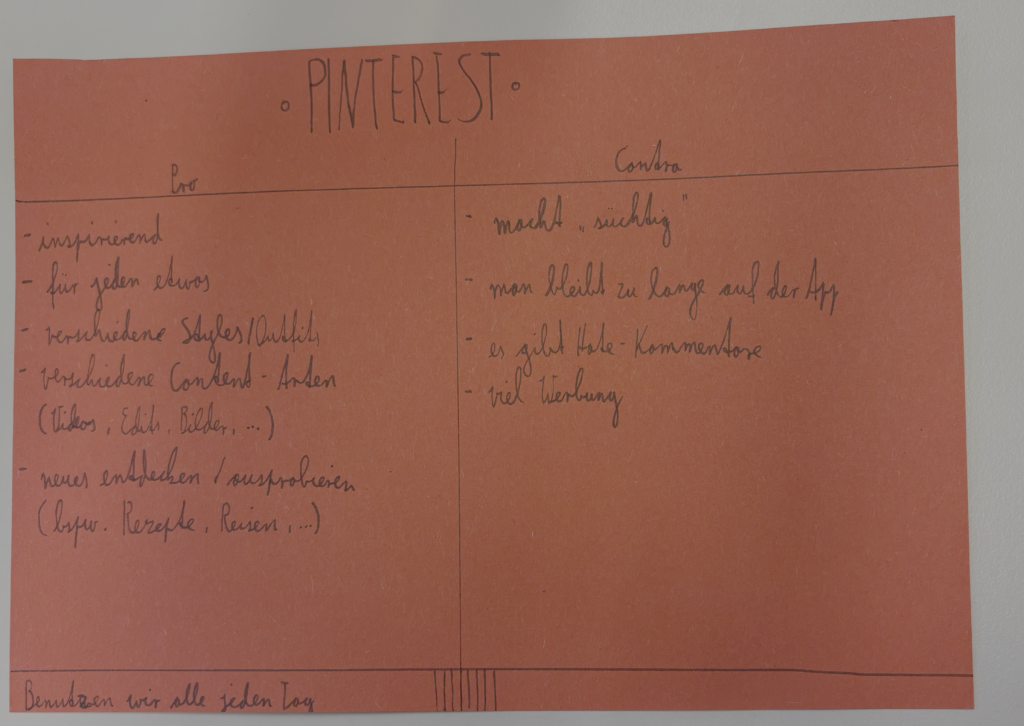 • PINTEREST •
Pro
Contra
- inspirierend
- für jeden etwas
- verschiedene Styles/Outfits
- verschiedene Content-Arten
(Videos, Edits, Bilder, ...)
- neues entdecken / ausprobieren
(bspw. Rezepte, Reisen, ...)
- macht „süchtig"
- man bleibt zu lange auf der App
- es gibt Hate-Kommentare
- viel Werbung
Benutzen wir alle jeden Tag